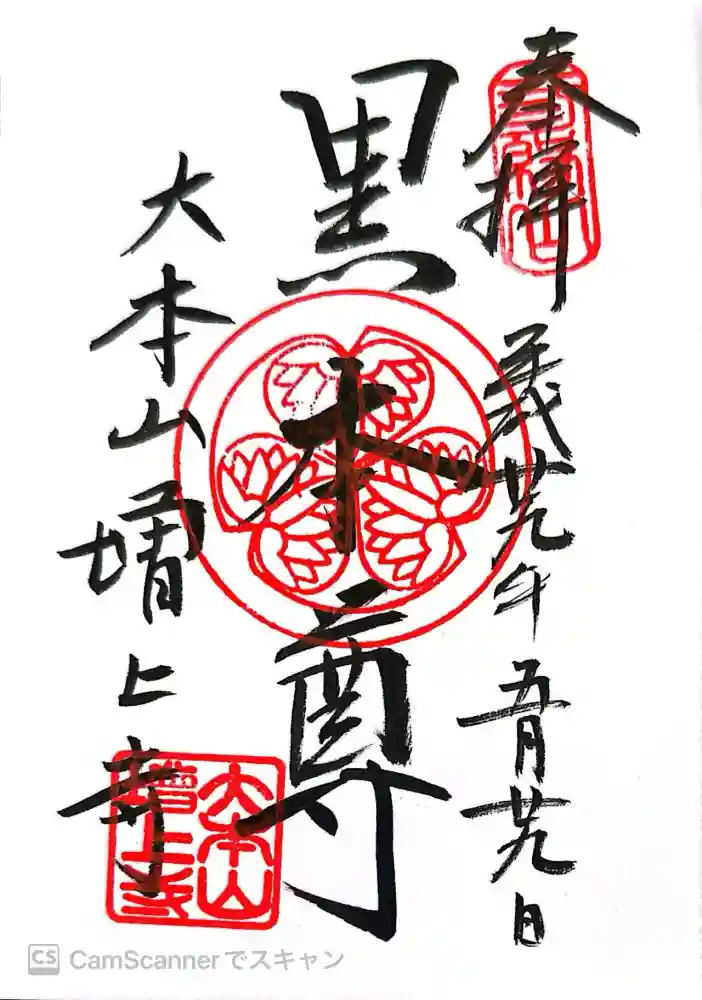 奉拝 平成廿九年 五月廿九日
三縁山
黒本尊
大本山増上寺
大本山
増上寺
CS CamScannerでスキャン